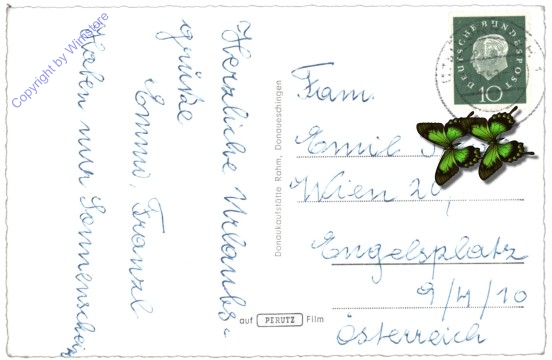 Copyright by Winstore
Herzliche Urlaubs-
grüße
Emmo, Franzl
Haben nur Sonnenschein
Donaukaufstätte Rahm, Donaueschingen
auf PERUTZ Film
DEUTSCHE BUNDESPOST
10
Fam.
Emil
Wien 20,
Engelsplatz
9/4/10
Österreich